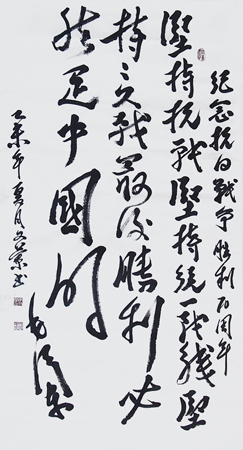 纪念抗日战争胜利七十周年
坚持抗战坚持统一战线坚
持持久战最后胜利必
然是中国的
毛泽东
乙未年夏月文景书